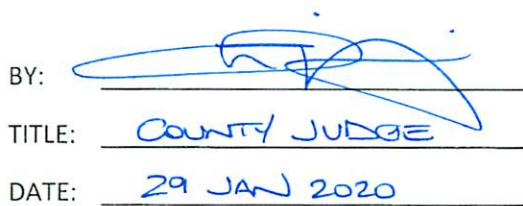 BY:
TITLE: COUNTY JUDGE
DATE: 29 JAN 2020